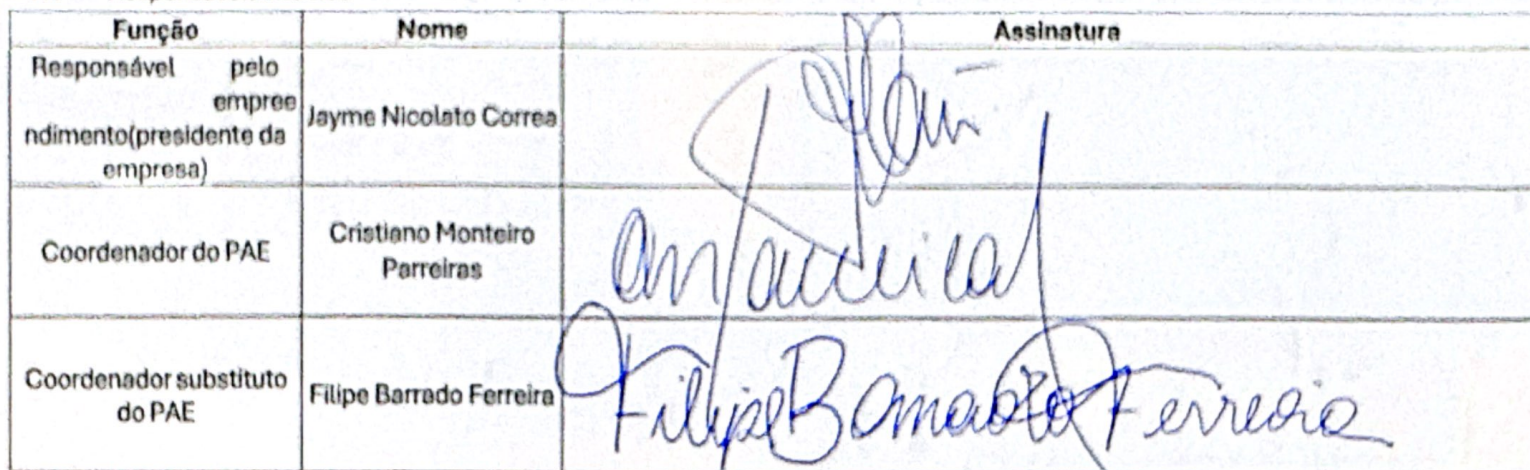 Função Nome Assinatura
Responsável pelo
empree
ndimento(presidente da
empresa)
Jayme Nicolato Correa
Coordenador do PAE
Cristiano Monteiro
Parreiras
Coordenador substituto
do PAE
Filipe Barrado Ferreira
Ferreira